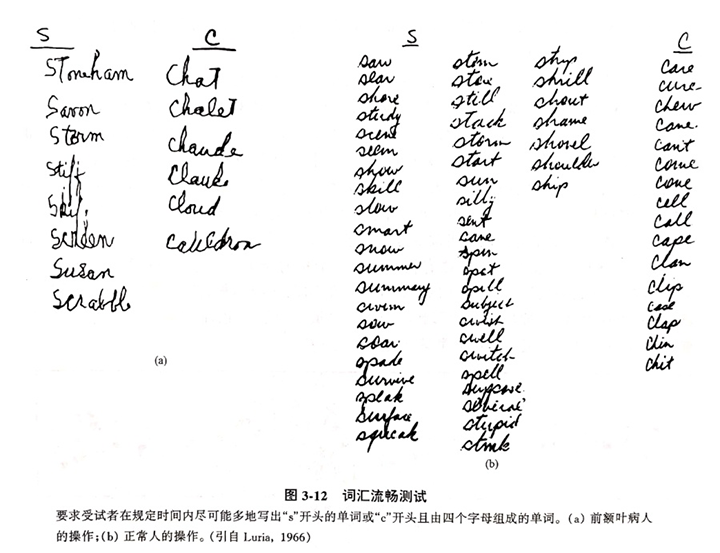 S
C
Stoneham
Savon
Storm
Stift
Screen
Susan
Scrabble
Chat
Chalet
Chaude
Claude
Cloud
Cauldron
(a)
S
C
saw
sear
shore
study
scene
seem
show
skill
slow
smart
snow
summer
summary
swim
sow
soar
spade
survive
speak
surface
squeak
stem
stew
still
stack
storm
start
sun
silly
sent
sane
spin
spat
spill
subject
swish
swell
switch
spell
suppose
several
stupid
stink
strip
shrill
shout
shame
shovel
shoulder
ship
care
cure
chew
cane
can't
come
cone
cell
call
cape
clan
clip
case
clap
chin
chit
(b)
图 3-12 词汇流畅测试
要求受试者在规定时间内尽可能多地写出“s”开头的单词或“c”开头且由四个字母组成的单词。(a) 前额叶病人
的操作;(b) 正常人的操作。(引自 Luria, 1966)